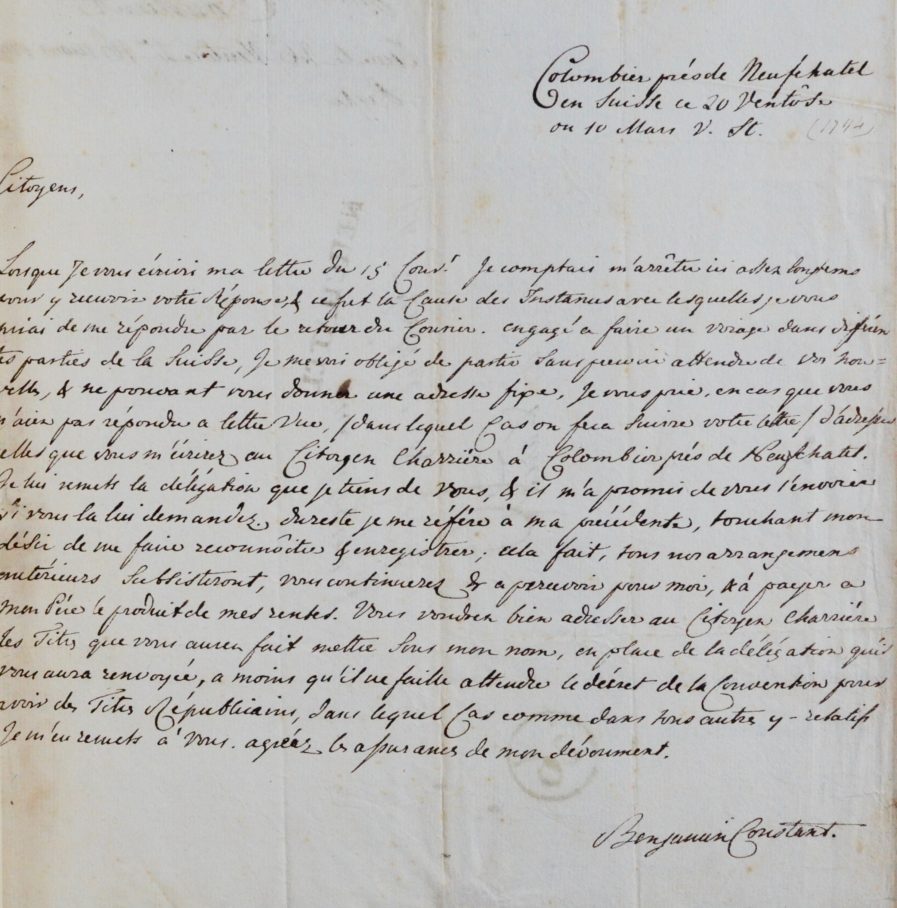 Colombier près de Neufchatel
en Suisse ce 20 Ventôse
ou 10 Mars V. St. (1794)
Citoyens,
Lorsque Je vous écrivis ma lettre du 15 Cour.t Je comptais m'arrêter ici assez longtems
pour y recevoir votre Réponse, & ce fut la Cause des Instances avec lesquelles je vous
priai de me répondre par le retour du Courier. engagé a faire un voiage dans différen
tes parties de la Suisse, Je me vois obligé de partir sans pouvoir attendre de vos nou=
velles, & ne pouvant vous donner une adresse fixe, Je vous prie, en cas que vous
n'aiez pas répondu a lettre Vue, /dans lequel Cas on fera suivre votre lettre/ d'adresser
celles que vous m'écrirez au Citoyen Charrière à Colombier près de Neufchatel.
Je lui remets la délégation que je tiens de vous, & il m'a promis de vous l'envoier
si vous la lui demandez. du reste je me réfère à ma précédente, touchant mon
désir de me faire reconnôitre & enregistrer; cela fait, tous nos arrangemens
antérieurs subsisteront, vous continuerez & a percevoir pour moi, & à payer a
mon Père le produit de mes rentes. Vous voudrez bien adresser au Citoyen Charrière
les Titres que vous aurez fait mettre sous mon nom, en place de la délégation qu'il
vous aura renvoyée, a moins qu'il ne faille attendre le décret de la Convention pour
avoir des Titres Républicains, dans lequel Cas comme dans tous autres y-relatifs
Je m'en remets à vous. agréez les assurances de mon dévoument.
Benjamin Constant.